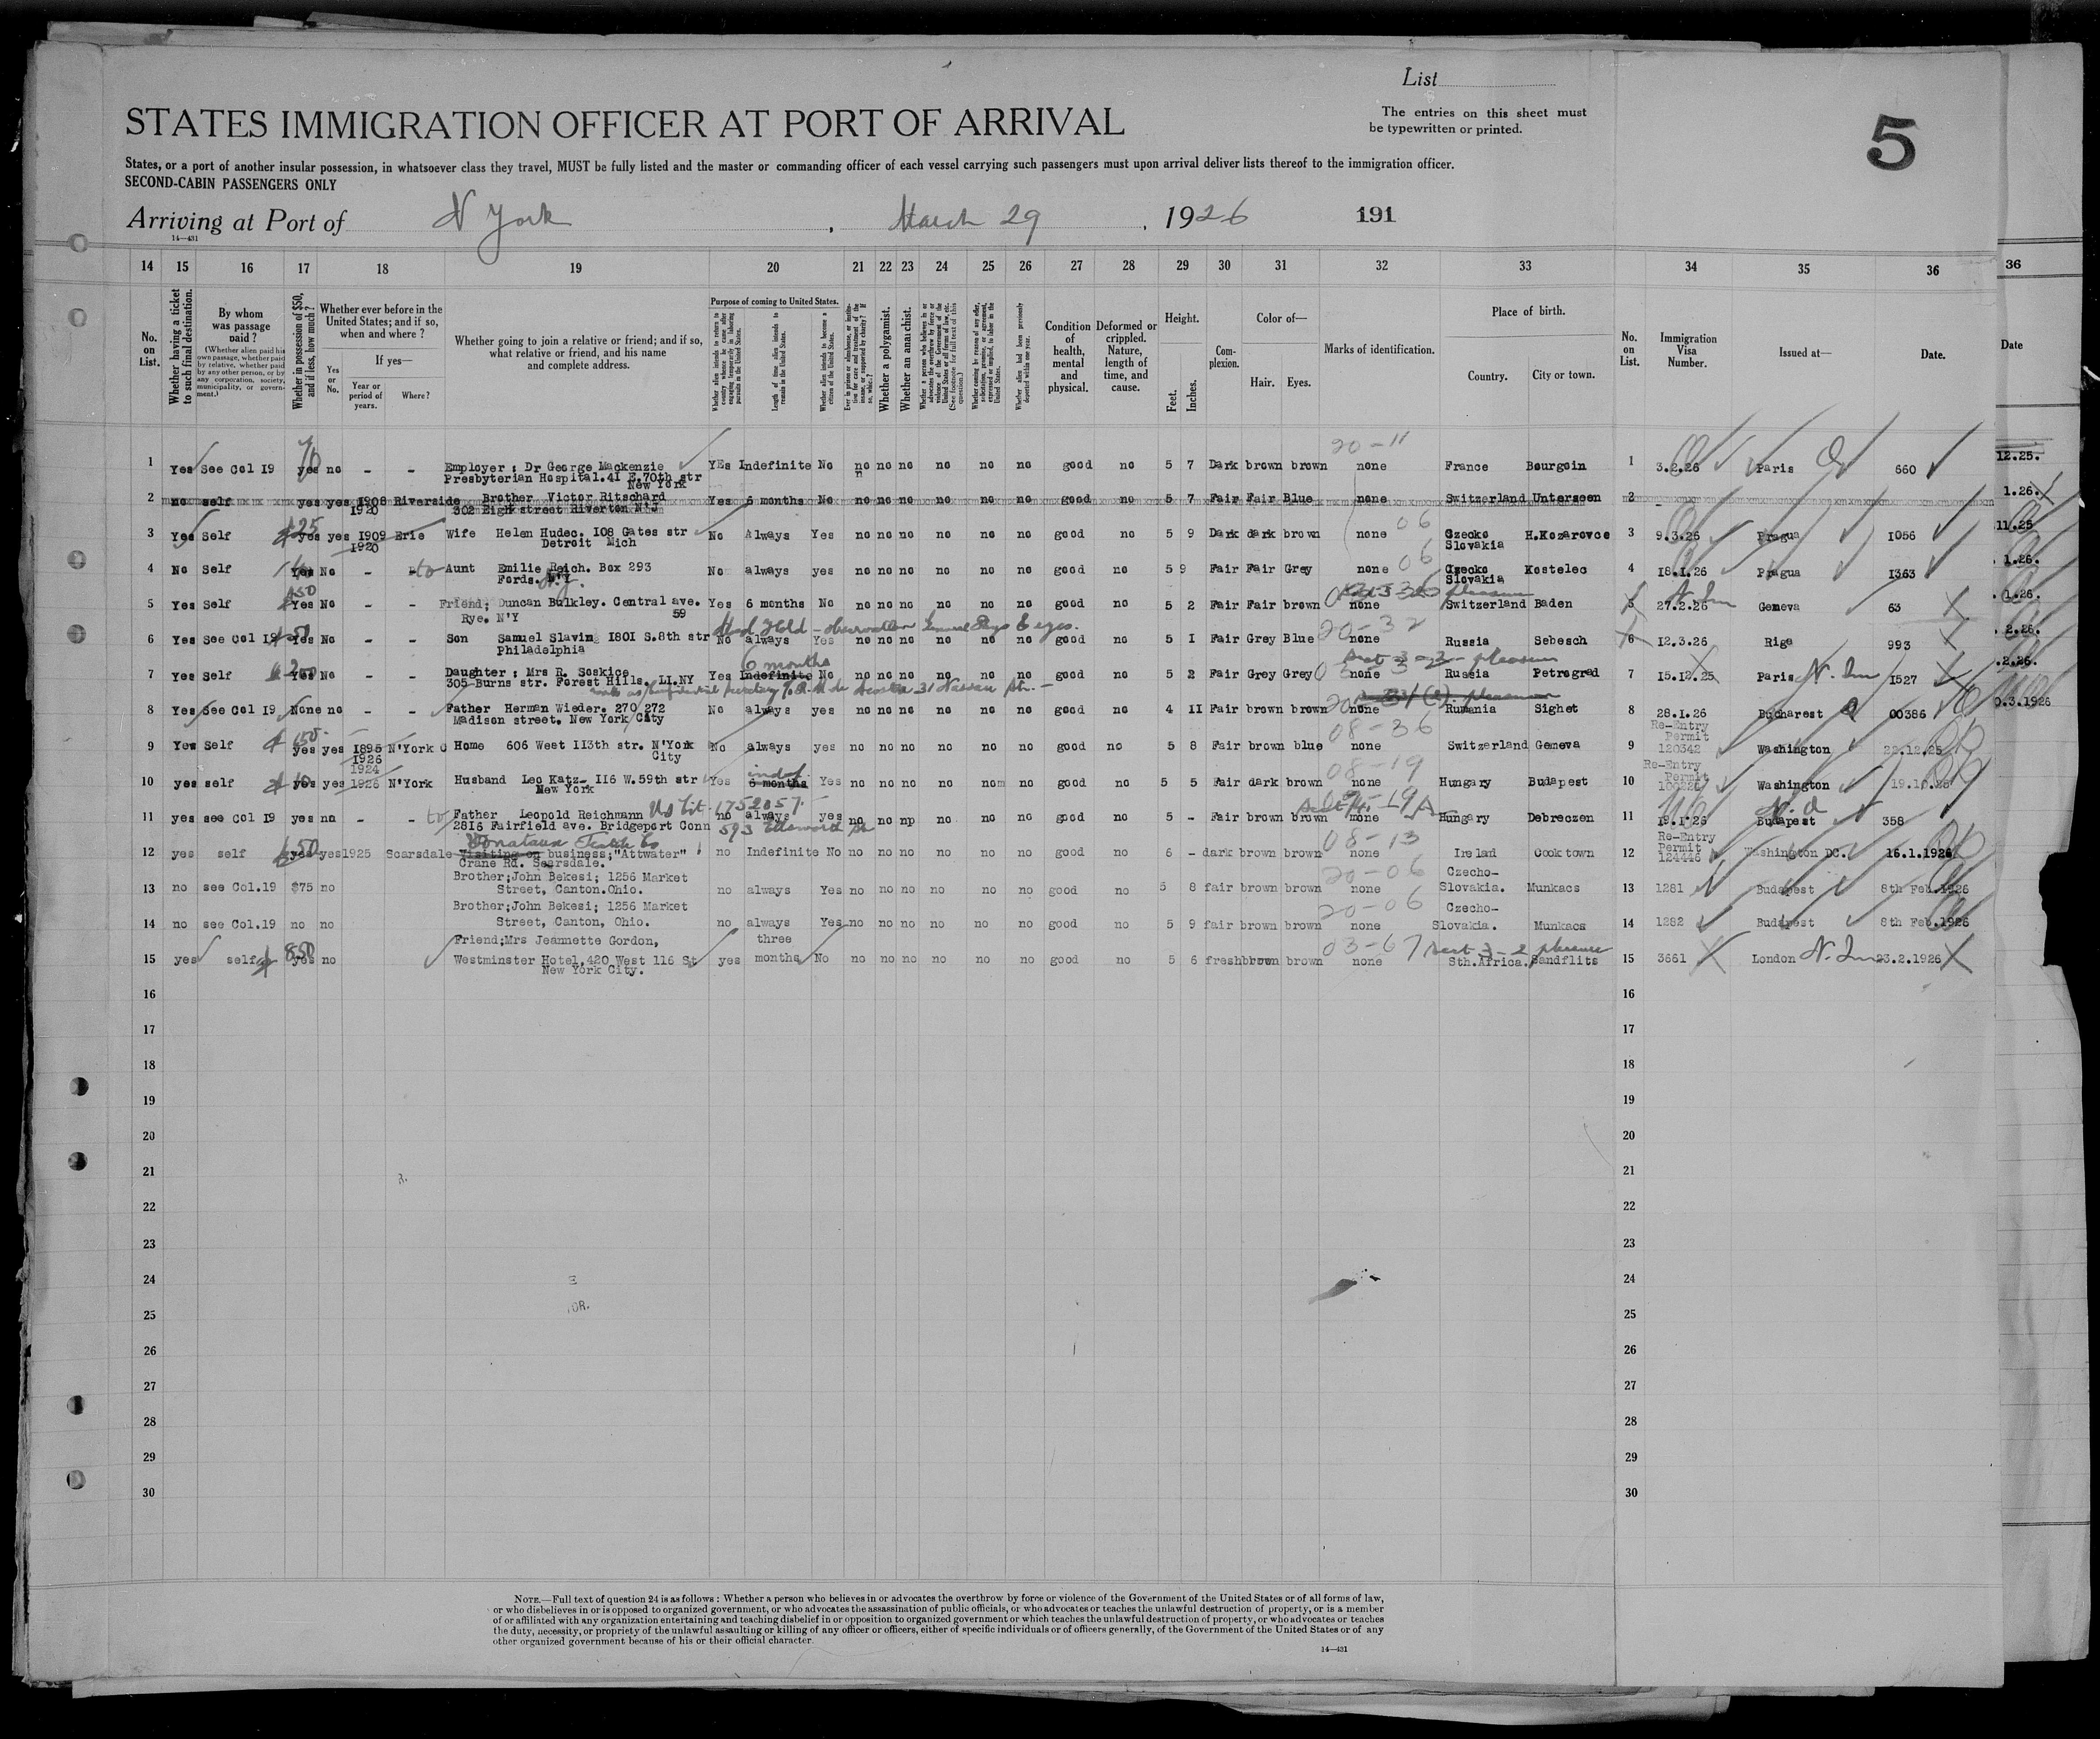 List
The entries on this sheet must
be typewritten or printed.
5
STATES IMMIGRATION OFFICER AT PORT OF ARRIVAL
States, or a port of another insular possession, in whatsoever class they travel, MUST be fully listed and the master or commanding officer of each vessel carrying such passengers must upon arrival deliver lists thereof to the immigration officer.
SECOND-CABIN PASSENGERS ONLY
Arriving at Port of N York, March 29, 1926 191
14—431
14 15 16 17 18 19 20 21 22 23 24 25 26 27 28 29 30 31 32 33 34 35 36 36
No. on List.
Whether having a ticket to such final destination.
By whom was passage paid?
(Whether alien paid his own passage, whether paid by relative, whether paid by any other person, or by any corporation, society, municipality, or government.)
Whether in possession of $50, and if less, how much?
Whether ever before in the United States; and if so, when and where?
Yes or No.
If yes—
Year or period of years.
Where?
Whether going to join a relative or friend; and if so, what relative or friend, and his name and complete address.
Purpose of coming to United States.
Whether alien intends to return to country whence he came after engaging temporarily in laboring pursuits in the United States.
Length of time alien intends to remain in the United States.
Whether alien intends to become a citizen of the United States.
Ever in prison or almshouse, or institution for care and treatment of the insane, or supported by charity? If so, which?
Whether a polygamist.
Whether an anarchist.
Whether a person who believes in or advocates the overthrow by force or violence of the Government of the United States or all forms of law, etc. (See footnote for full text of this question.)
Whether coming by reason of any offer, solicitation, promise, or agreement, expressed or implied, to labor in the United States.
Whether alien had been previously deported within one year.
Condition of health, mental and physical.
Deformed or crippled. Nature, length of time, and cause.
Height.
Feet. Inches.
Complexion.
Color of—
Hair. Eyes.
Marks of identification.
Place of birth.
Country. City or town.
No. on List.
Immigration Visa Number.
Issued at—
Date.
Date
20-11
1 Yes See Col I9 70 yes no - - Employer: Dr George Mackenzie YEs Indefinite No no no no no no no good no 5 7 Dark brown brown none France Bourgoin 1 3.2.26 Paris 660 12.25.
Presbyterian Hospital.4I E.70th str
New York
2 no self yes yes I908 Riverside Brother Victor Ritschard Yes 6 months No no no no no no no good no 5 7 Fair Fair Blue none Switzerland Unterseen 2 1.26.
I920 302 Eigh street Riverton N'J
3 Yes Self $25 yes yes I909 Erie Wife Helen Hudec. I08 Gates str No Always Yes no no no no no no good no 5 9 Dark dark brown none 06 Czecko H.Kozarovce 3 9.3.26 Pragua I056 11.25
I920 Detroit Mich Slovakia
4 No Self Yes No - - to Aunt Emilie Reich. Box 293 No always yes no no no no no no good no 5 9 Fair Fair Grey none 06 Czecko Kostelec 4 I8.I.26 Pragua I363 1.26.
Fords. N.J. Slovakia
5 Yes Self $50 Yes No - - Friend; Duncan Bulkley. Central ave. Yes 6 months No no no no no no no good no 5 2 Fair Fair brown none Switzerland Baden 5 27.2.26 Geneva 63 1.26.
Rye. N'Y 59 pleasure
6 Yes See Col I9 $50 Yes No - - Son Samuel Slavin I80I S.8th str No always Yes no no no no no no good no 5 I Fair Grey Blue 20-32 none Russia Sebesch 6 I2.3.26 Riga 993 2.26.
Philadelphia
7 Yes Self $200 Yes No - - Daughter: Mrs R. Soskice Yes Indefinite 6 months No no no no no no no good no 5 2 Fair Grey Grey none Russia Petrograd 7 I5.I2.25 Paris I527 .2.26.
305 Burns str. Forest Hills. LI.NY pleasure
8 Yes See Col I9 None no - - Father Herman Wieder. 270/272 No always yes no no no no no no good no 4 II Fair brown brown none Rumania Sighet 8 28.I.26 Bucharest 00386 0.3.1926
Madison street. New York City
08-36 Re-Entry Permit
9 Yes Self $150 yes yes I895 N'York Home 606 West II3th str. N'York No always yes no no no no no no good no 5 8 Fair brown blue none Switzerland Geneva 9 120342 Washington 22.12.25
I926 City
1924 08-19 Re-Entry Permit
10 yes self yes yes 1926 N'York Husband Leo Katz. II6 W.59th str Yes 6 months indef Yes no no no no no no good no 5 5 Fair dark brown none Hungary Budapest 10 Washington
New York
11 yes see Col I9 yes no - - to Father Leopold Reichmann no always yes no no np no no no good no 5 - Fair brown brown none Hungary Debreczen 11 Budapest 358
28I6 Fairfield ave. Bridgeport Conn 593 Ellsworth St
08-13 Re-Entry Permit
12 yes self $50 yes yes 1925 Scarsdale Visiting on business;"Attwater" no Indefinite No no no no no no no good no 6 - dark brown brown none Ireland Cooktown 12 124446 Washington DC. 16.1.1926
Crane Rd. Scarsdale.
Brother;John Bekesi; 1256 Market 20-06 Czecho-
13 no see Col.19 $75 no Street, Canton.Ohio. no always Yes no no no no no no good no 5 8 fair brown brown none Slovakia. Munkacs 13 1281 Budapest 8th Feb.1926
Brother;John Bekesi; 1256 Market 20-06 Czecho-
14 no see Col.19 no no Street, Canton, Ohio. no always Yes no no no no no no good no 5 9 fair brown brown none Slovakia. Munkacs 14 1282 Budapest 8th Feb.1926
Friend;Mrs Jeannette Gordon, three 03-67 Sect 3-2 pleasure
15 yes self $850 yes no Westminster Hotel,420 West 116 St yes months No no no no no no no good no 5 6 fresh brown brown none Sth.Africa. Sandflits 15 3661 London 23.2.1926
New York City.
16 16
17 17
18 18
19 19
20 20
21 21
22 22
23 23
24 24
25 25
26 26
27 27
28 28
29 29
30 30
NOTE.—Full text of question 24 is as follows: Whether a person who believes in or advocates the overthrow by force or violence of the Government of the United States or of all forms of law,
or who disbelieves in or is opposed to organized government, or who advocates the assassination of public officials, or who advocates or teaches the unlawful destruction of property, or is a member
of or affiliated with any organization entertaining and teaching disbelief in or opposition to organized government or which teaches the unlawful destruction of property, or who advocates or teaches
the duty, necessity, or propriety of the unlawful assaulting or killing of any officer or officers, either of specific individuals or of officers generally, of the Government of the United States or of any
other organized government because of his or their official character.
14—431